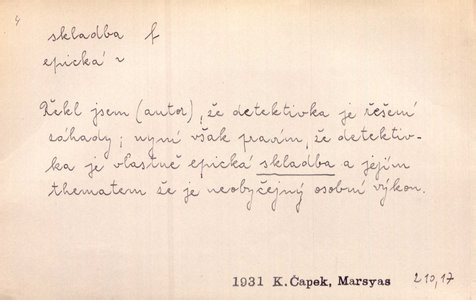 4
skladba f
epická ~
Řekl jsem (autor), že detektivka je řešení
záhady; nyní však pravím, že detektiv-
ka je vlastně epická skladba a jejím
thematem že je neobyčejný osobní výkon.
1931 K. Čapek, Marsyas 210,17